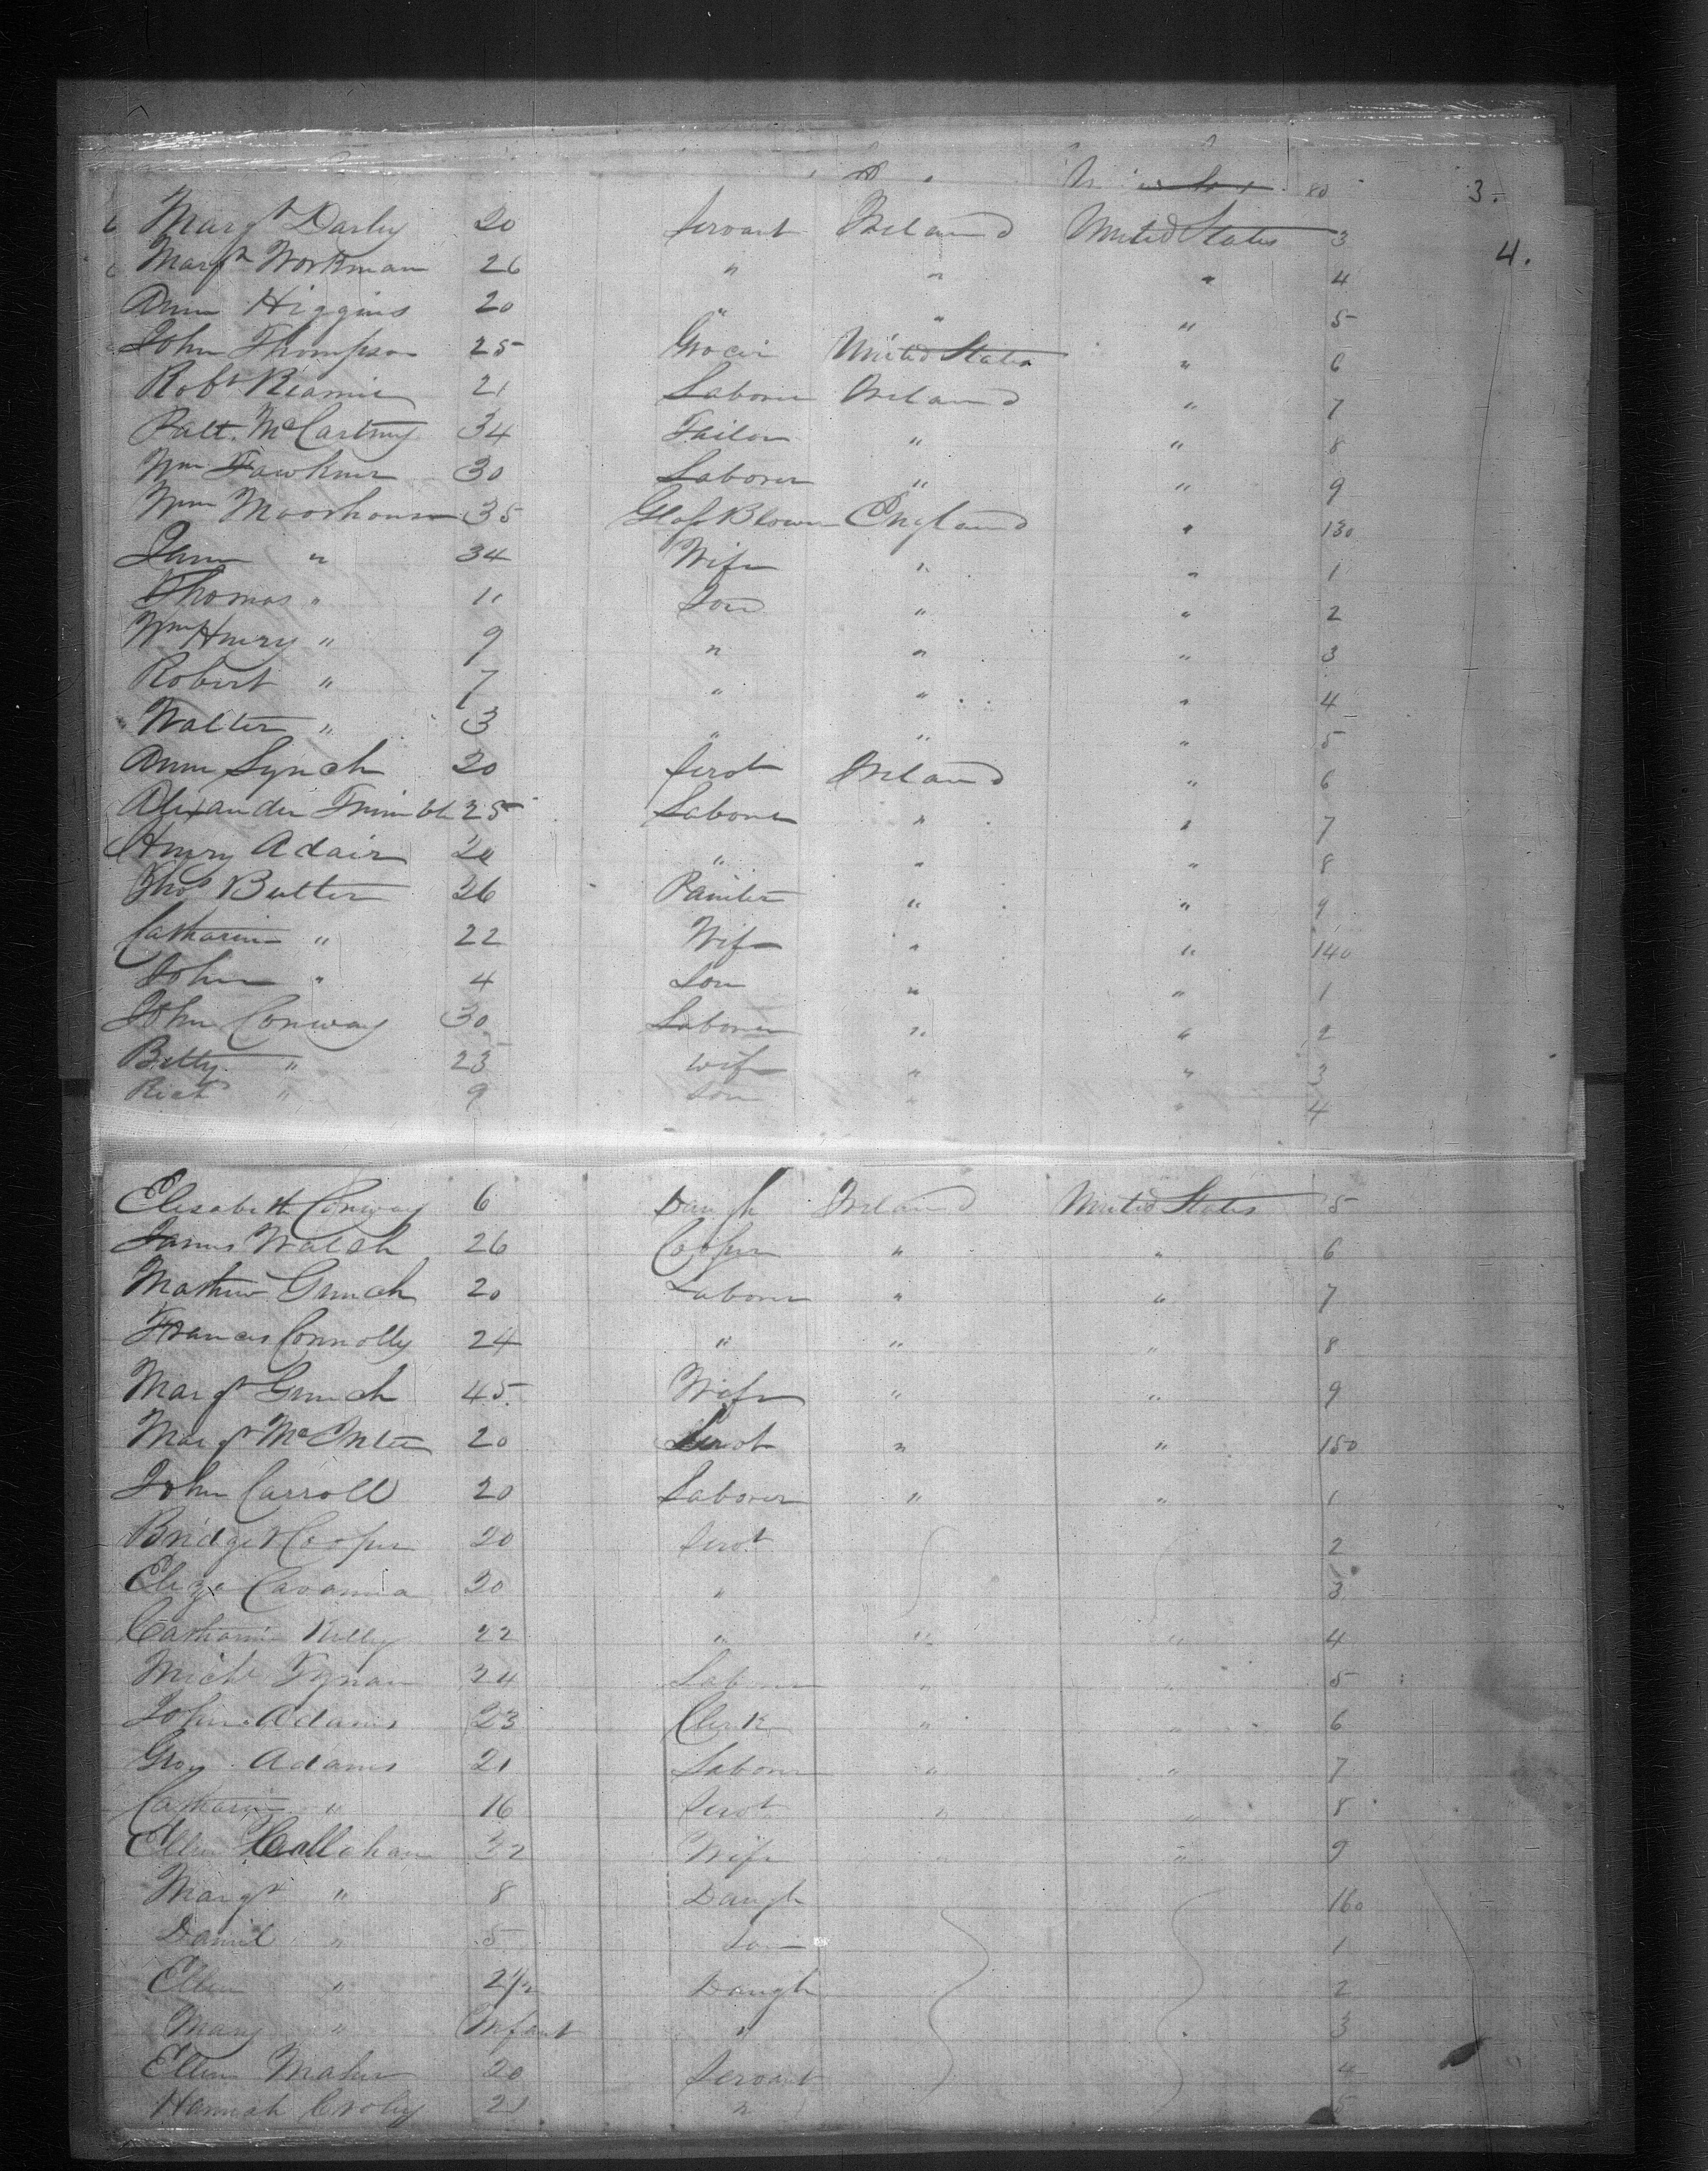 80 3.
Margt Darby 20 Servant Ireland United States 3
4.
Margt Workman 26 " " " 4
Ann Higgins 20 " " " 5
John Thompson 25 Grocer United States " 6
Robt 21 Laborer Ireland " 7
Patt. McCartney 34 Tailor " " 8
Wm Fawkner 30 Laborer " " 9
Wm Moorhouse 35 Glass Blower England " 130
Jane " 34 Wife " " 1
Thomas " 11 Son " " 2
Wm Henry " 9 " " " 3
Robert " 7 " " " 4
Walter " 3 " " " 5
Ann Lynch 20 Servt Ireland " 6
Alexander Trimble 25 Laborer " " 7
Henry Adair 20 " " " 8
Thos Butler 26 Painter " " 9
Catharine " 22 Wife " " 140
John " 4 Son " " 1
John Conway 30 Laborer " " 2
Betty " 23 Wife " " 3
Richd " 9 Son " " 4
Elisabeth Conway 6 Daugh Ireland United States 5
James Walsh 26 Cooper " " 6
Mathew 20 Laborer " " 7
Francis Connolly 24 " " " 8
Margt 45 Wife " " 9
Margt McEntee 20 Servt " " 150
John Carroll 20 Laborer " " 1
Bridget Cooper 20 Servt 2
Eliza Cavanna 20 " 3
Catharine Kelly 22 " " " 4
Michl Tynan 24 Laborer " " 5
John Adams 23 Clerk " " 6
Geo. Adams 21 Laborer " " 7
Catharine " 16 Servt " " 8
Ellen Callahan 32 Wife " " 9
Margt " 8 Daugh 160
Daniel " 5 Son 1
Ellen " 2 1/2 Daugh 2
Mary " Infant " 3
Ellen Maher 20 Servant 4
Hannah Croley 21 " 5